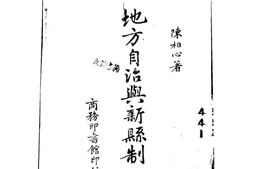 陳柏心著
地方自治與新縣制
商務印書館印行
441